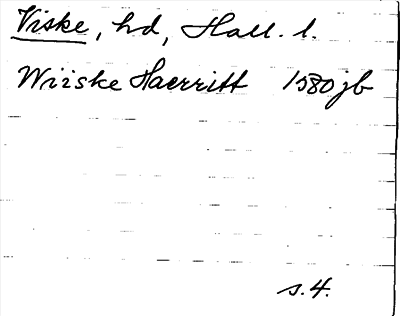 Viske, hd, Hall. l.
Wiiske Haerritt 1580 jb
s. 4.